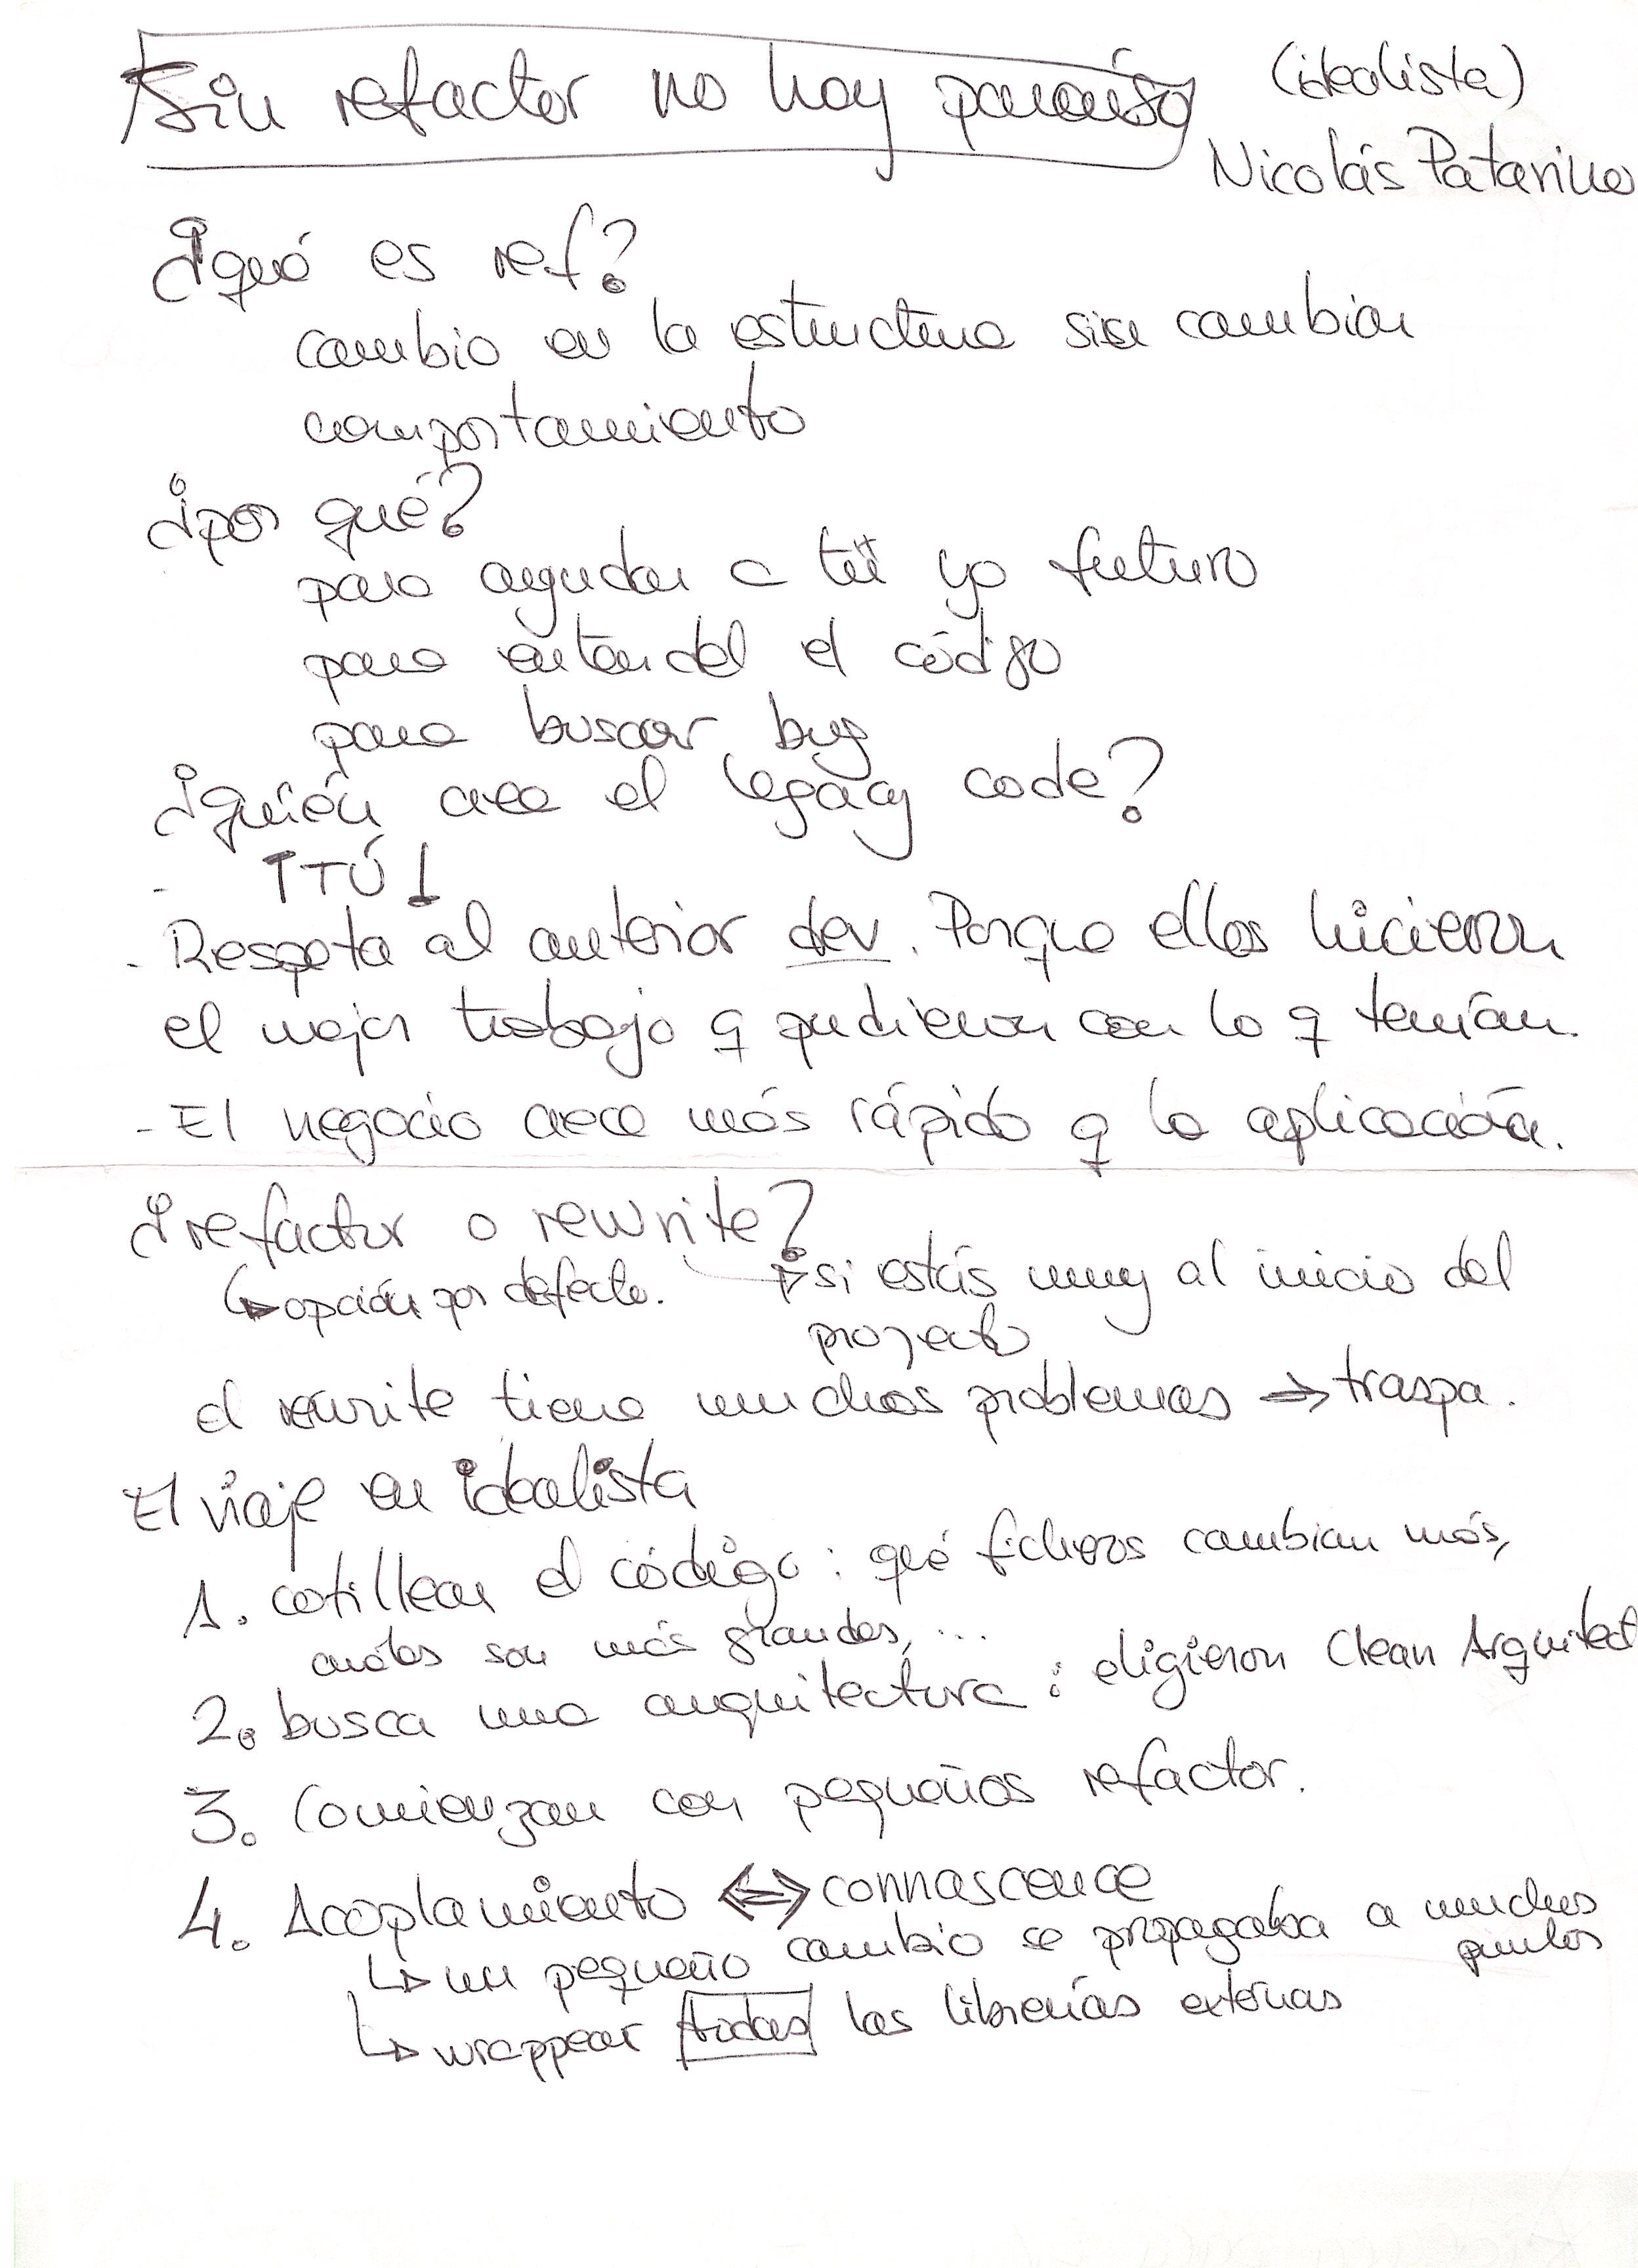 Sin refactor no hay paraíso
(idealista)
Nicolás Patarino
¿qué es ref?
cambio en la estructura sin cambiar
comportamiento
¿por qué?
para ayudar a tú yo futuro
para entendel el código
para buscar bug
¿quién crea el legacy code?
- ¡TÚ!
- Respeta al anterior dev. Porque ellos hicieron
el mejor trabajo q pudieron con lo q tenían.
- El negocio crece más rápido q la aplicación.
¿refactor o rewrite?
↳ opción por defecto. → si estás muy al inicio del
proyecto
el rewrite tiene muchos problemas → traspa.
El viaje en idealista
1. cotillear el código: qué ficheros cambian más,
cuáles son más grandes, ...
2. busca una arquitectura: eligieron Clean Arquitect
3. Comienzan con pequeños refactor.
4. Acoplamiento ⇔ connascence
↳ un pequeño cambio se propagaba a muchos
puntos
↳ wrappear todas las librerías externas